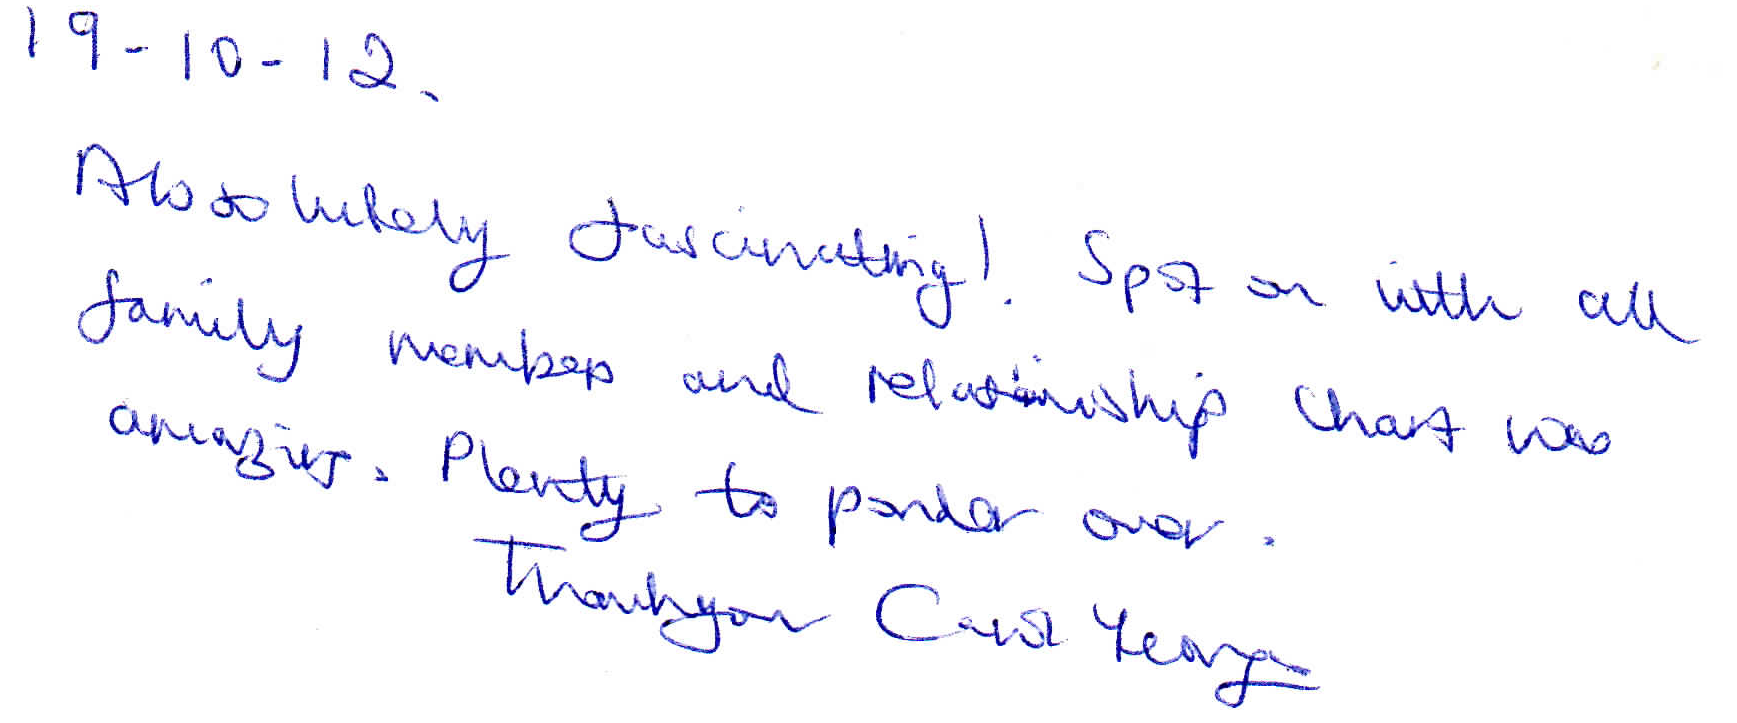 19-10-12.
Absolutely fascinating! Spot on with all
family members and relationship chart was
amazing. Plenty to ponder over.
Thankyou Carol